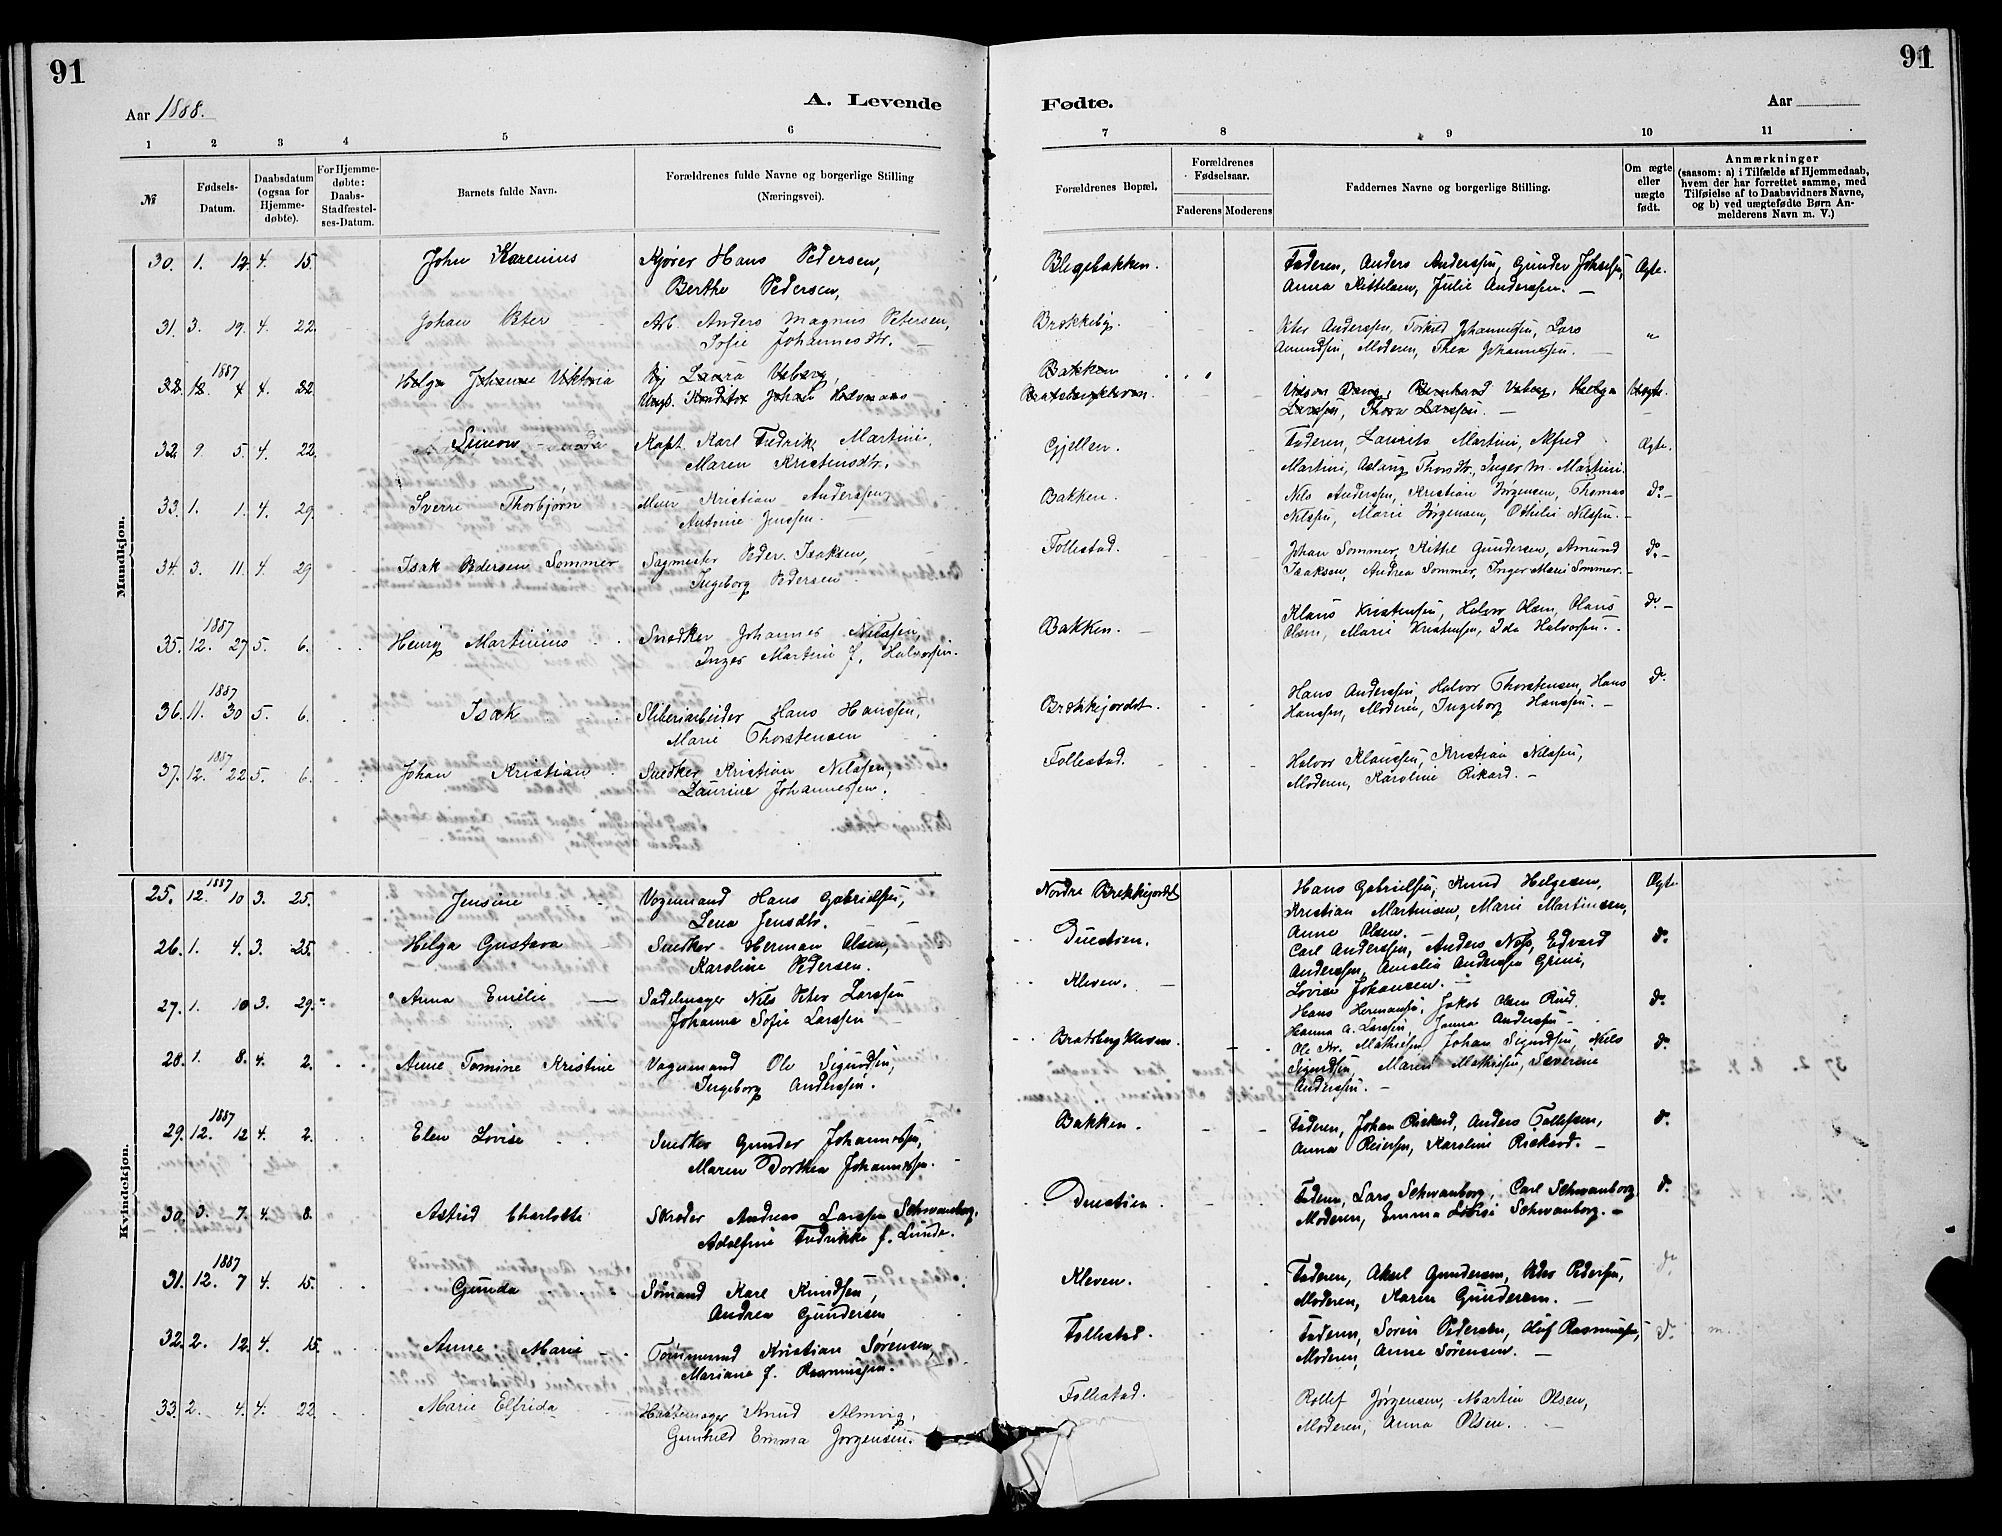 91
Aar 1888.
A. Levende
1 2 3 4 5 6
№
Fødsels-Datum.
Daabsdatum (ogsaa for Hjemme-døbte).
For Hjemme-døbte: Daabs-Stadfæstel-ses-Datum.
Barnets fulde Navn.
Forældrenes fulde Navne og borgerlige Stilling (Næringsvei).
Mandkjøn.
30. 1. 12. 4. 15. John Karenius Kjører Hans Pedersen,
Berthe Pedersen,
31. 3. 19. 4. 22. Johan Peter Arb. Anders Magnus Petersen,
Sofie Johannesdtr.
1887
32. 12. 4 4. 22. Helga Johanne Viktoria Pig Laura Vaberg,
Ungk. Konditor Johan
32. 9. 5. 4. 22. Simon Kapt. Karl Fredrik Martini.
Maren Kristensdtr.
33. 1. 1. 4. 29. Sverre Thorbjørn Murer Kristian Anderssen,
Antonie Jenssen.
34. 3. 11. 4 29 Isak Pedersen Sommer Sagmester Peder Isaksen,
Ingeborg Pedersen
1887
35. 12. 27. 5. 6. Henrig Martinius Snedker Johannes Nilssen,
Inger Martini f. Halvorsen.
1887
36. 11. 30 5. 6. Isak Sliberiarbeider Hans Hanssen,
Marie Thorstensen
1887
37. 12. 22 5. 6. Johan Kristian Snedker Kristian Nilssen,
Laurine Johannessen.
Kvindekjøn.
1887
25. 12. 10 3. 25. Jensine Vognmand Hans Gabrielsen,
Lena Jensdtr.
26. 1. 4. 3. 25. Helga Gustava Snedker Herman Olsen,
Karoline Pedersen.
27. 1. 10 3. 29. Anna Emilie Sadelmager Nils Peter Larssen
Johanne Sofie Larssen
28. 1. 8. 4. 2. Anne Tomine Kristine Vognmand Ole Sigurdsen,
Ingeborg Anderssen.
1887
29. 12. 12 4. 2. Elen Lovise Snedker Gunder Johannessen,
Maren Dorthea Johannessen.
30. 3. 7. 4. 8. Astrid Charlotte Skræder Andreas Larssen Schwanborg,
Adolfine Fredrikke f. Lunde.
1887
31. 12. 7 4. 15. Gunda Sømand Karl Knudsen,
Andrea Gundersen
32. 2. 12. 4. 15. Anne Marie Tømmermand Kristian Sørensen,
Mariane f. Rasmussen.
33. 2. 4. 4. 22. Marie Elfrida Hattemager Knud Almvig,
Gunhild Emma Jørgensen.
91
Fødte.
Aar
7 8 9 10 11
Forældrenes Bopæl.
Forældrenes Fødselsaar.
Faderens Moderens
Faddernes Navne og borgerlige Stilling.
Om ægte eller uægte født.
Anmærkninger
(saasom: a) i Tilfælde af Hjemmedaab, hvem der har forrettet samme, med Tilføielse af to Daabsvidners Navne, og b) ved uægtefødte Børn An-melderens Navn m. V.)
Blegebakken. Faderen, Anders Anderssen, Gunder Johnsen, Ægte.
Anna Kittelsen, Julie Anderssen.
Brekkeby. Peter Anderssen, Torkild Johannessen, Lars "
Amundsen, Moderen, Thea Johannessen.
Bakken
Bratsbergkleven. Bernhard Vaberg, Helga Uægte.
Larssen, Thora Larssen.
Gjellen. Faderen, Laurits Martini, Alfred Ægte.
Martini, Aslaug Thorsdtr., Inger M. Martini.
Bakken. Nils Anderssen, Kristian Jørgensen, Thomas do.
Nilssen, Marie Jørgensen, Othilie Nilssen.
Follestad. Johan Sommer, Kittel Gundersen, Amund do.
Isaksen, Andrea Sommer, Inger Marie Sommer.
Bakken. Klaus Kristensen, Halvor Olsen, Olaus do.
Olsen, Marie Kristensen, Ida Halvorsen.
Brekkejordet. Hans Anderssen, Halvor Thorstensen, Hans do.
Hanssen, Moderen, Ingeborg Hanssen.
Follestad. Halvor Klaussen, Kristian Nilssen,
Moderen, Karoline Rikard.
Nordre Brekkejordet Hans Gabrielsen, Knud Helgesen, Ægte.
Kristian Martinsen, Marie Martinsen,
Anne Olsen.
Duestien. Carl Anderssen, Anders Næs, Edvard do.
Anderssen, Amalia Anderssen Grini,
Lovise Johansen.
Kleven. Hans Hermansen, Jakob Olsen Rud. do.
Hanna A. Larssen, Janna Anderssen
Bratsbergkleven. Ole Kr. Mathisen, Johan Sigurdsen, Niels do.
Sigurdsen, Maren Mathisen, Severine
Anderssen.
Bakken. Faderen, Johan Rickard, Anders Tollefsen, do.
Anna Reiersen, Karoline Rickard.
Duestien. Faderen, Lars Schwanborg, Carl Schwanborg do.
Moderen, Emma Lovise Schwanborg.
Kleven. Faderen, Aksel Gundersen, Peder Pedersen, do.
Moderen, Karen Gundersen.
Follestad. Faderen, Soren Pedersen, Oluf Rasmussen, do.
Moderen, Anne Sørensen.
Follestad. Rollef Jørgensen, Martin Olsen,
Moderen, Anna Olsen.